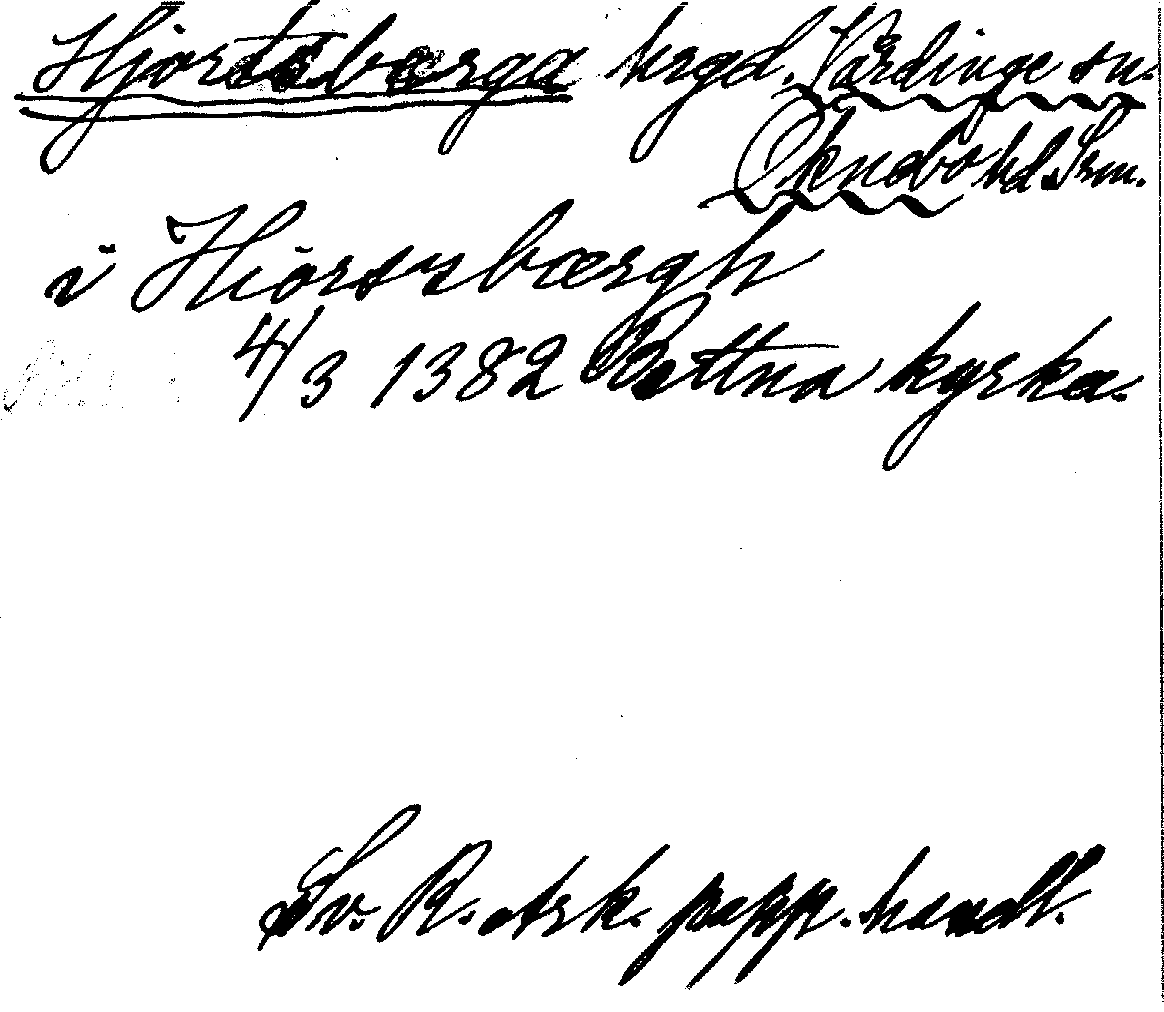 Hjortsberga hrgd. Vårdinge sn.
Öknebo hd. Srm.
i Hiorsysbærgh
4/3 1382 Bettna kyrka.
Sv. R. Ark. papp. handl.